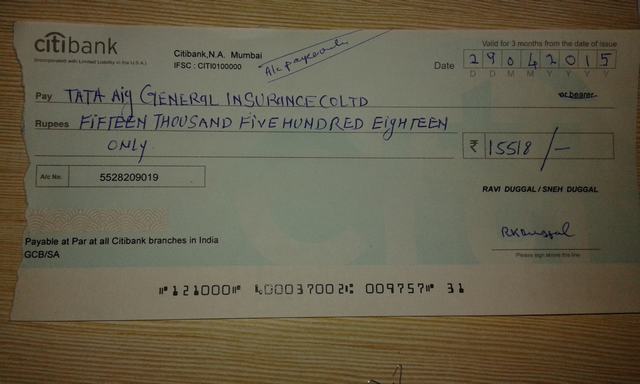 citibank
(Incorporated with Limited Liability in the U.S.A.)
Citibank,N.A. Mumbai
IFSC : CITI0100000
A/c payee only
Valid for 3 months from the date of issue
Date 29042015
D D M M Y Y Y Y
Pay TATA Aig GENERAL INSURANCE CO LTD
or bearer
Rupees FIFTEEN THOUSAND FIVE HUNDRED EIGHTEEN
ONLY
₹ 15518/-
A/c No. 5528209019
RAVI DUGGAL / SNEH DUGGAL
RKDuggal
Please sign above this line
Payable at Par at all Citibank branches in India
GCB/SA
⑈121000⑈ ⑆000370021⑆ 009757⑈ 31